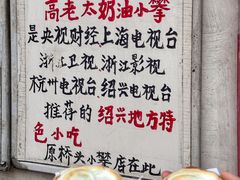 高老太奶油小攀
是央视财经上海电视台
浙江卫视.浙江影视
杭州电视台.绍兴电视台
推荐的绍兴地方特
色小吃
原桥头小攀店在此